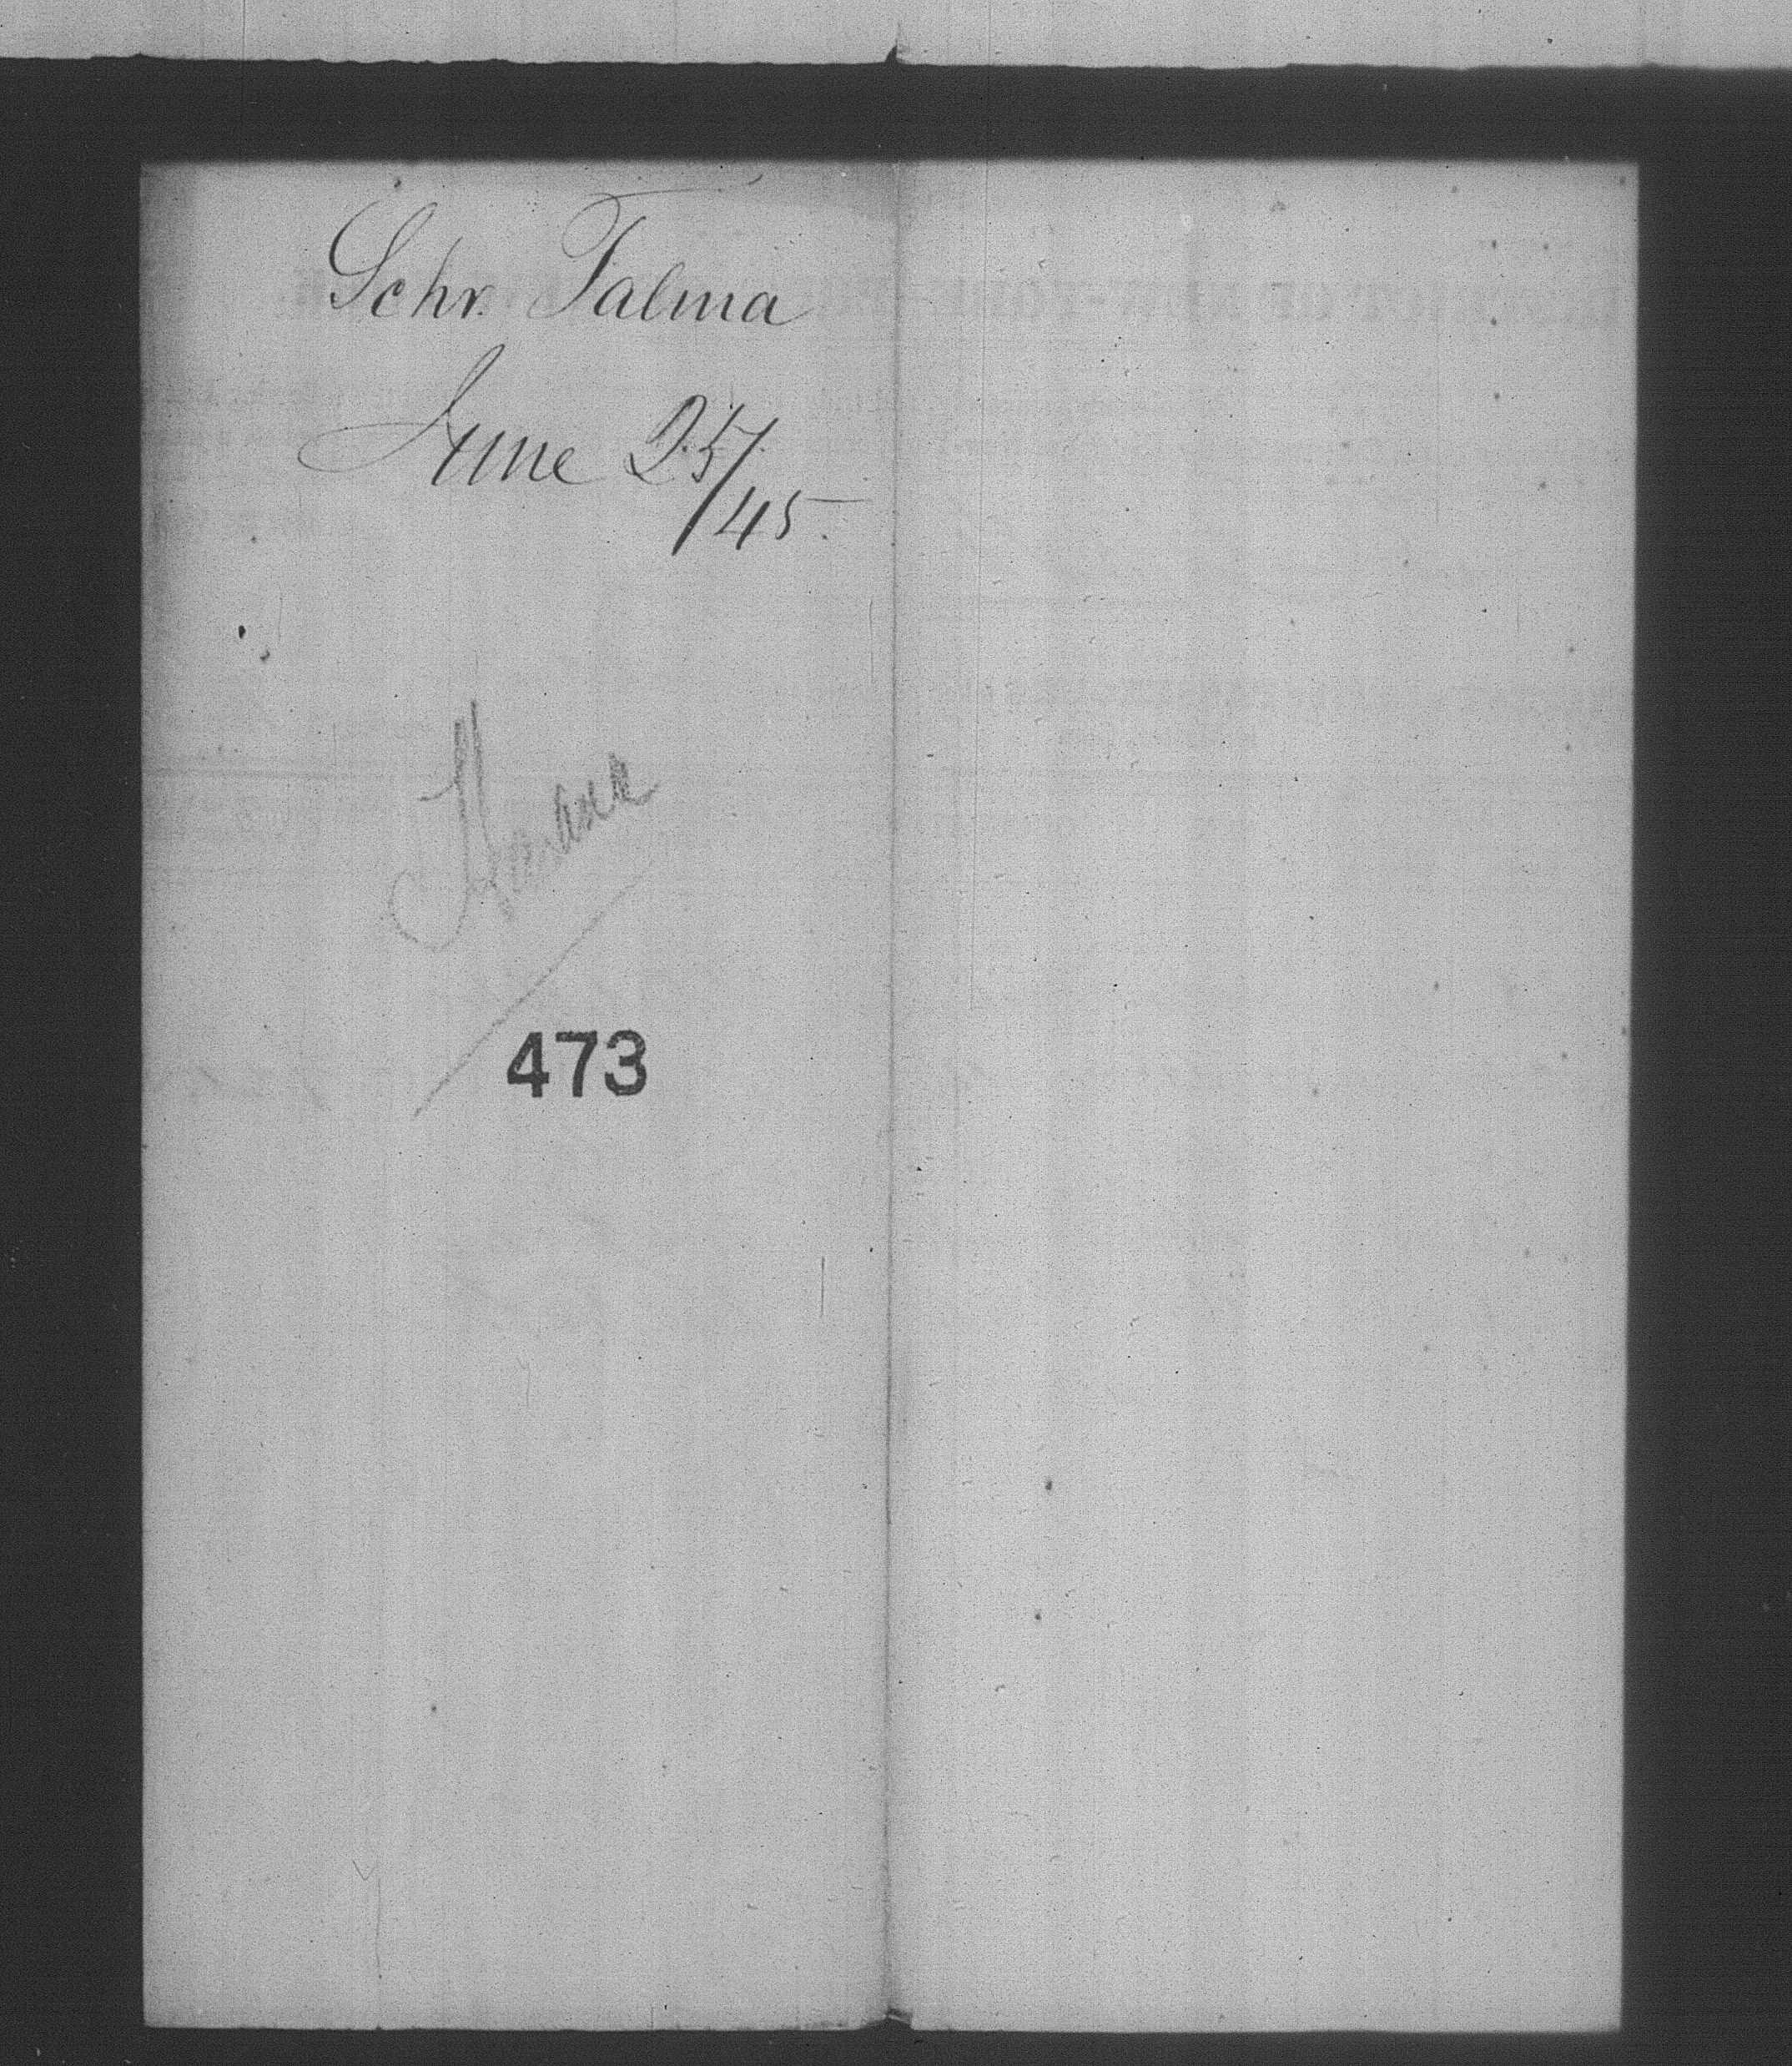 Schr. Talma
June 25/
/45.
Havana
473